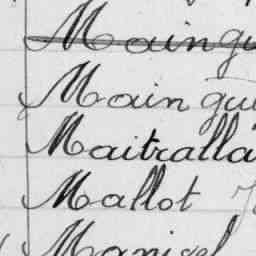 Maingu
Maingu
Maitralla
Mallot
Manigel